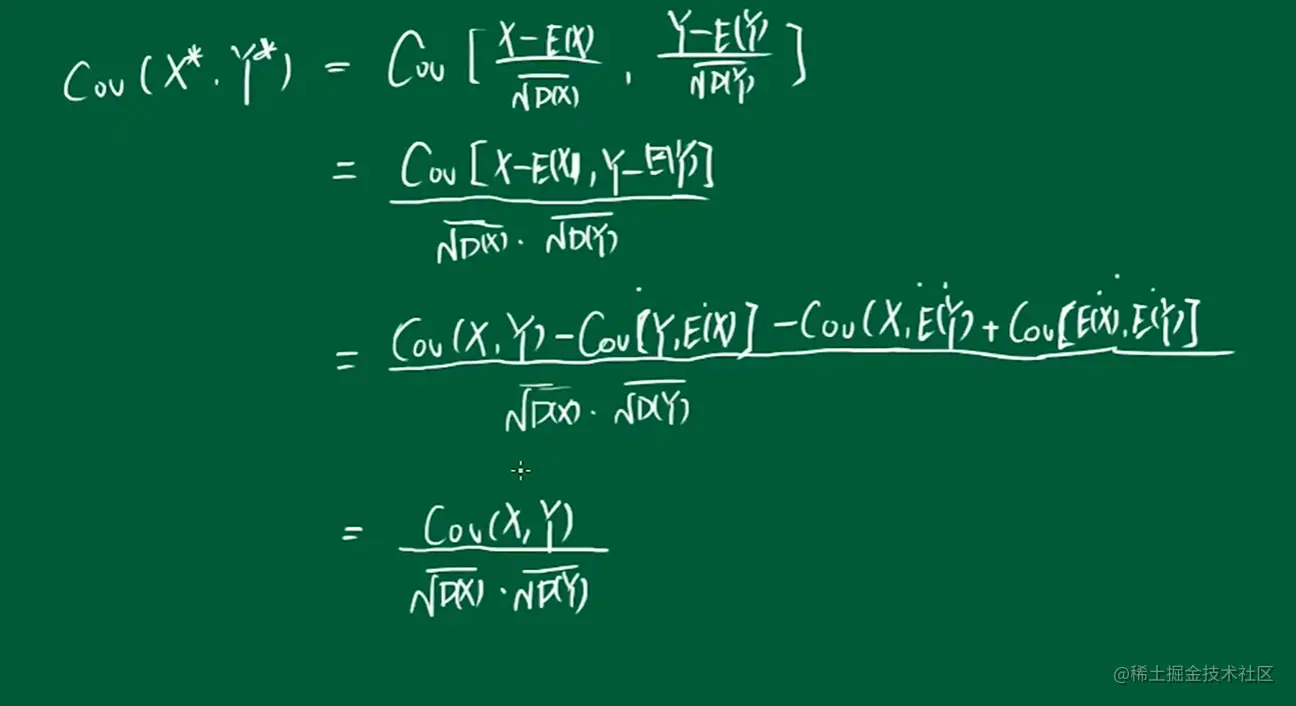 Cov(X*, Y*) = Cov[(X-E(X))/√D(X), (Y-E(Y))/√D(Y)]
= Cov[X-E(X), Y-E(Y)] / (√D(X) · √D(Y))
= (Cov(X, Y) - Cov[Y, E(X)] - Cov(X, E(Y)) + Cov[E(X), E(Y)]) / (√D(X) · √D(Y))
= Cov(X, Y) / (√D(X) · √D(Y))
@稀土掘金技术社区